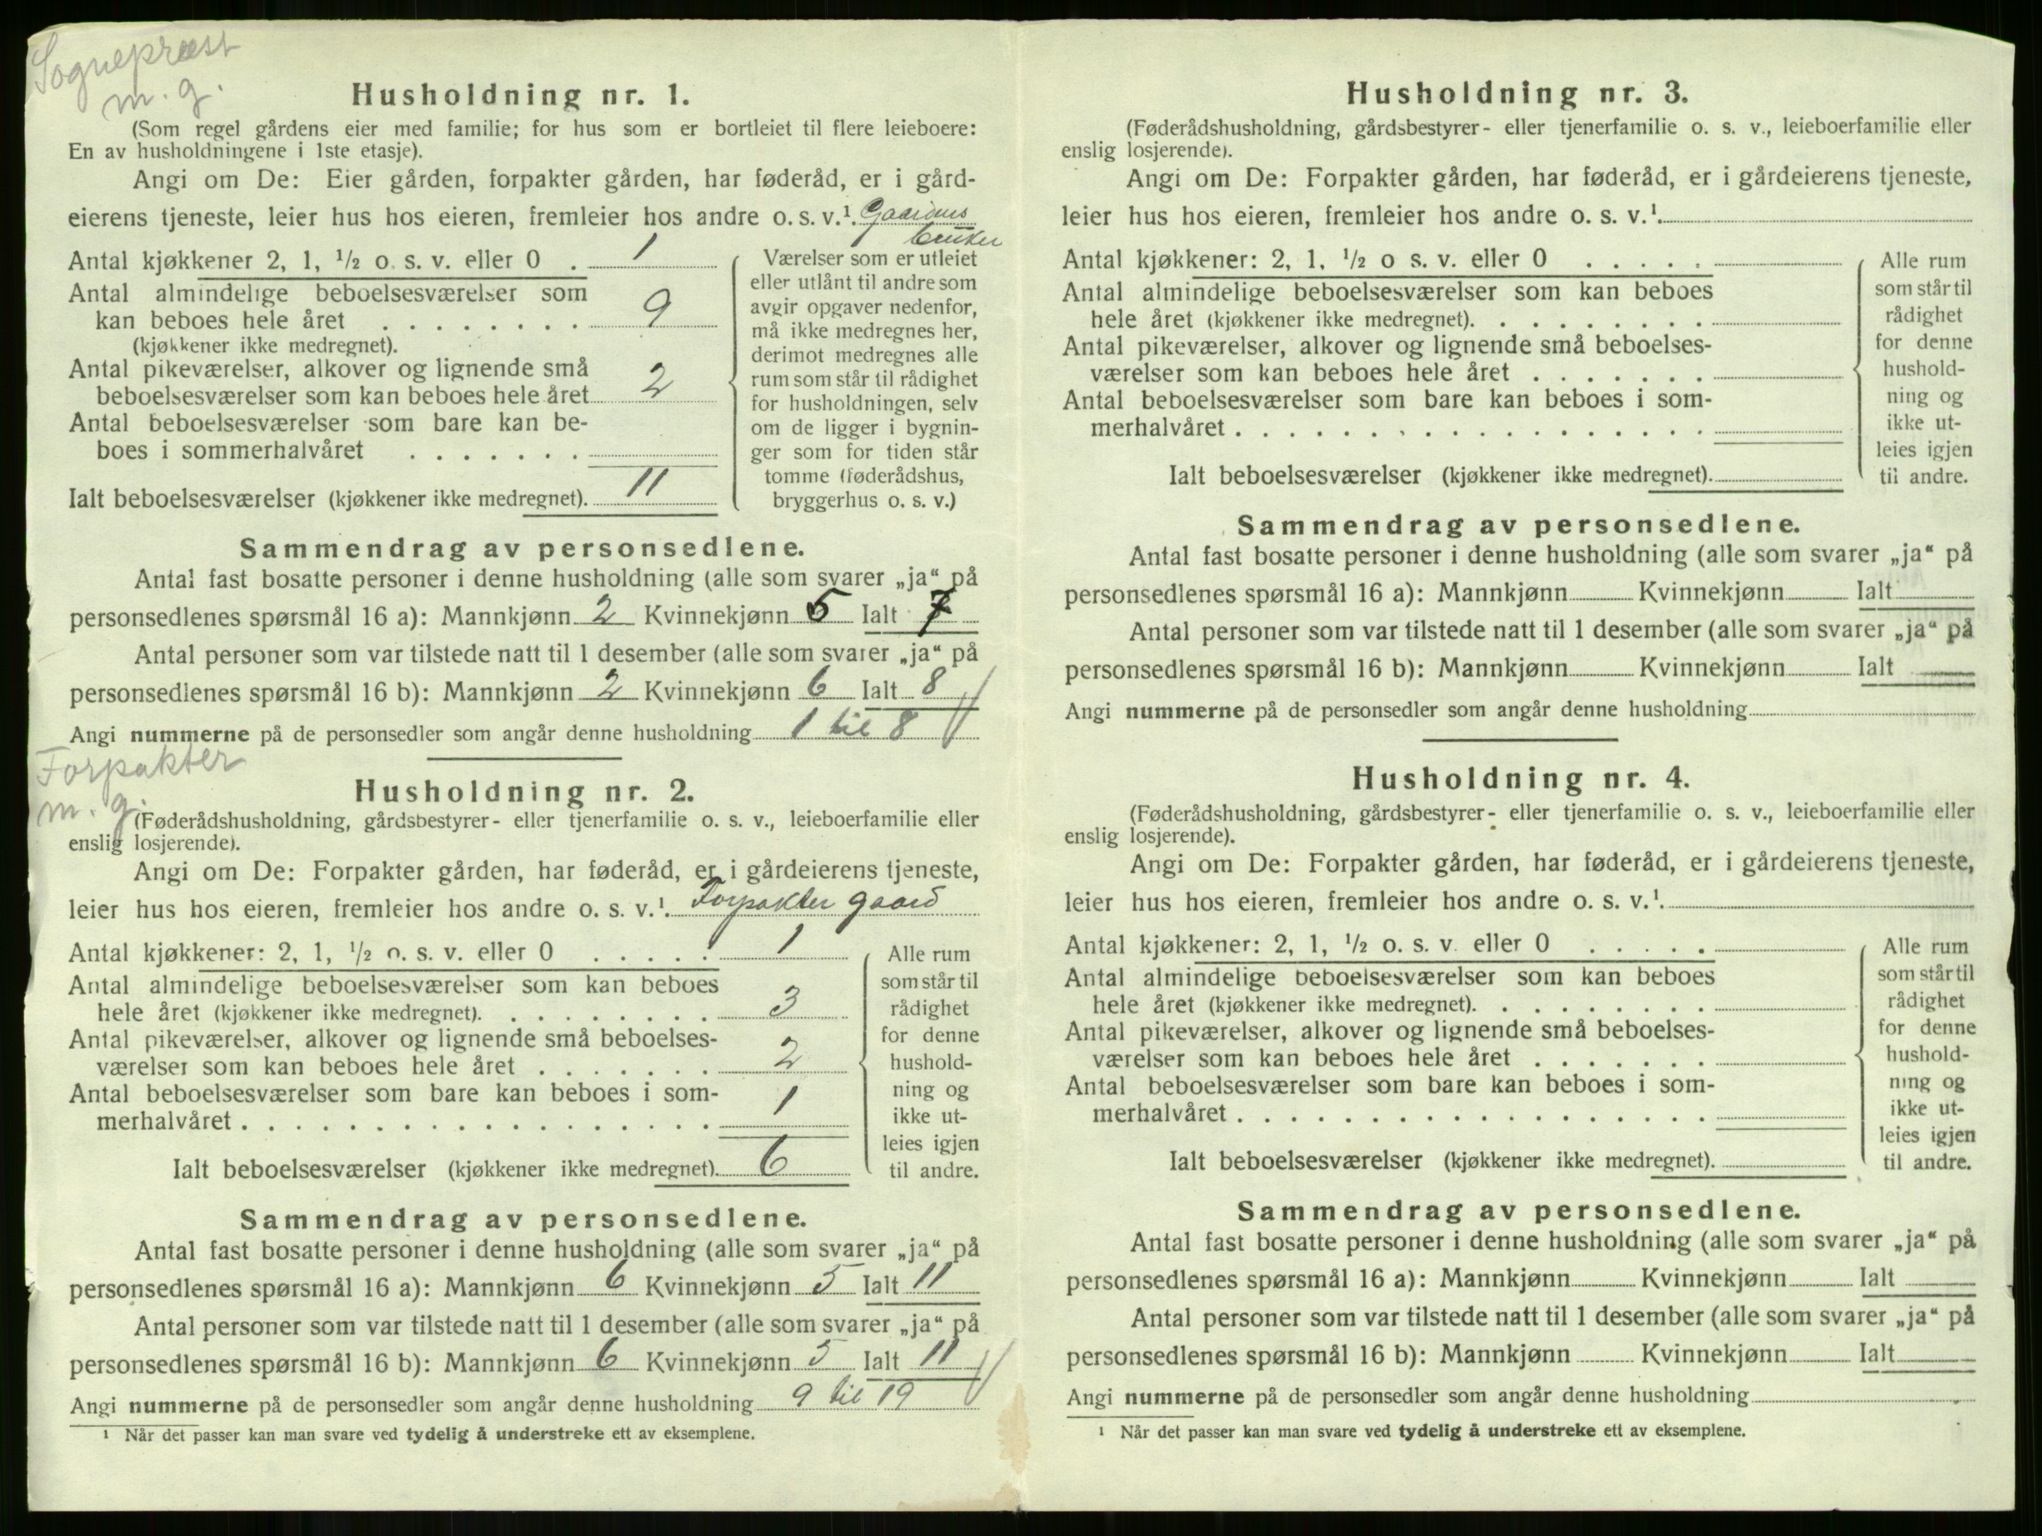 Sogneprest
m. g.
Husholdning nr. 1.
(Som regel gårdens eier med familie; for hus som er bortleiet til flere leieboere:
En av husholdningene i 1ste etasje).
Angi om De: Eier gården, forpakter gården, har føderåd, er i gård-
eierens tjeneste, leier hus hos eieren, fremleier hos andre o. s. v.¹ Gaardens
bruker
Antal kjøkkener 2, 1, ½ o. s. v. eller 0 . 1
Antal almindelige beboelsesværelser som
kan beboes hele året . . . . . . . . 9
(kjøkkener ikke medregnet).
Antal pikeværelser, alkover og lignende små
beboelsesværelser som kan beboes hele året 2
Antal beboelsesværelser som bare kan be-
boes i sommerhalvåret . . . . . . .
Ialt beboelsesværelser (kjøkkener ikke medregnet). 11
Værelser som er utleiet
eller utlånt til andre som
avgir opgaver nedenfor,
må ikke medregnes her,
derimot medregnes alle
rum som står til rådighet
for husholdningen, selv
om de ligger i bygnin-
ger som for tiden står
tomme (føderådshus,
bryggerhus o. s. v.)
Sammendrag av personsedlene.
Antal fast bosatte personer i denne husholdning (alle som svarer „ja“ på
personsedlenes spørsmål 16 a): Mannkjønn 2 Kvinnekjønn 5 Ialt 7
Antal personer som var tilstede natt til 1 desember (alle som svarer „ja“ på
personsedlenes spørsmål 16 b): Mannkjønn 2 Kvinnekjønn 6 Ialt 8
Angi nummerne på de personsedler som angår denne husholdning 1 til 8
Forpakter
m. g.
Husholdning nr. 2.
(Føderådshusholdning, gårdsbestyrer- eller tjenerfamilie o. s. v., leieboerfamilie eller
enslig losjerende).
Angi om De: Forpakter gården, har føderåd, er i gårdeierens tjeneste,
leier hus hos eieren, fremleier hos andre o. s. v.¹. Forpakter gaard
Antal kjøkkener: 2, 1, ½ o. s. v. eller 0 . . . . . 1
Antal almindelige beboelsesværelser som kan beboes
hele året (kjøkkener ikke medregnet). . . . . . . . . 3
Antal pikeværelser, alkover og lignende små beboelses-
værelser som kan beboes hele året . . . . . . . 2
Antal beboelsesværelser som bare kan beboes i som-
merhalvåret . . . . . . . . . . . . . . . . . . 1
Ialt beboelsesværelser (kjøkkener ikke medregnet). 6
Alle rum
som står til
rådighet
for denne
hushold-
ning og
ikke ut-
leies igjen
til andre.
Sammendrag av personsedlene.
Antal fast bosatte personer i denne husholdning (alle som svarer „ja“ på
personsedlenes spørsmål 16 a): Mannkjønn 6 Kvinnekjønn 5 Ialt 11
Antal personer som var tilstede natt til 1 desember (alle som svarer „ja“ på
personsedlenes spørsmål 16 b): Mannkjønn 6 Kvinnekjønn 5 Ialt 11
Angi nummerne på de personsedler som angår denne husholdning 9 til 19
¹ Når det passer kan man svare ved tydelig å understreke ett av eksemplene.
Husholdning nr. 3.
(Føderådshusholdning, gårdsbestyrer- eller tjenerfamilie o. s. v., leieboerfamilie eller
enslig losjerende).
Angi om De: Forpakter gården, har føderåd, er i gårdeierens tjeneste,
leier hus hos eieren, fremleier hos andre o. s. v.¹.
Antal kjøkkener: 2, 1, ½ o s. v. eller 0 . . . . .
Antal almindelige beboelsesværelser som kan beboes
hele året (kjøkkener ikke medregnet). . . . . . . . .
Antal pikeværelser, alkover og lignende små beboelses-
værelser som kan beboes hele året . . . . . . .
Antal beboelsesværelser som bare kan beboes i som-
merhalvåret . . . . . . . . . . . . . . . . . .
Ialt beboelsesværelser (kjøkkener ikke medregnet).
Alle rum
som står til
rådighet
for denne
hushold-
ning og
ikke ut-
leies igjen
til andre.
Sammendrag av personsedlene.
Antal fast bosatte personer i denne husholdning (alle som svarer „ja“ på
personsedlenes spørsmål 16 a): Mannkjønn Kvinnekjønn Ialt
Antal personer som var tilstede natt til 1 desember (alle som svarer „ja“ på
personsedlenes spørsmål 16 b): Mannkjønn Kvinnekjønn Ialt
Angi nummerne på de personsedler som angår denne husholdning
Husholdning nr. 4.
(Føderådshusholdning, gårdsbestyrer- eller tjenerfamilie o. s. v., leieboerfamilie eller
enslig losjerende).
Angi om De: Forpakter gården, har føderåd, er i gårdeierens tjeneste,
leier hus hos eieren, fremleier hos andre o. s. v.¹.
Antal kjøkkener: 2, 1, ½ o. s. v. eller 0 . . . . .
Antal almindelige beboelsesværelser som kan beboes
hele året (kjøkkener ikke medregnet). . . . . . . . .
Antal pikeværelser, alkover og lignende små beboelses-
værelser som kan beboes hele året . . . . . . .
Antal beboelsesværelser som bare kan beboes i som-
merhalvåret . . . . . . . . . . . . . . . . . .
Ialt beboelsesværelser (kjøkkener ikke medregnet).
Alle rum
som står til
rådighet
for denne
hushold-
ning og
ikke ut-
leies igjen
til andre.
Sammendrag av personsedlene.
Antal fast bosatte personer i denne husholdning (alle som svarer „ja“ på
personsedlenes spørsmål 16 a): Mannkjønn Kvinnekjønn Ialt
Antal personer som var tilstede natt til 1 desember (alle som svarer „ja“ på
personsedlenes spørsmål 16 b): Mannkjønn Kvinnekjønn Ialt
Angi nummerne på de personsedler som angår denne husholdning
¹ Når det passer kan man svare ved tydelig å understreke ett av eksemplene.